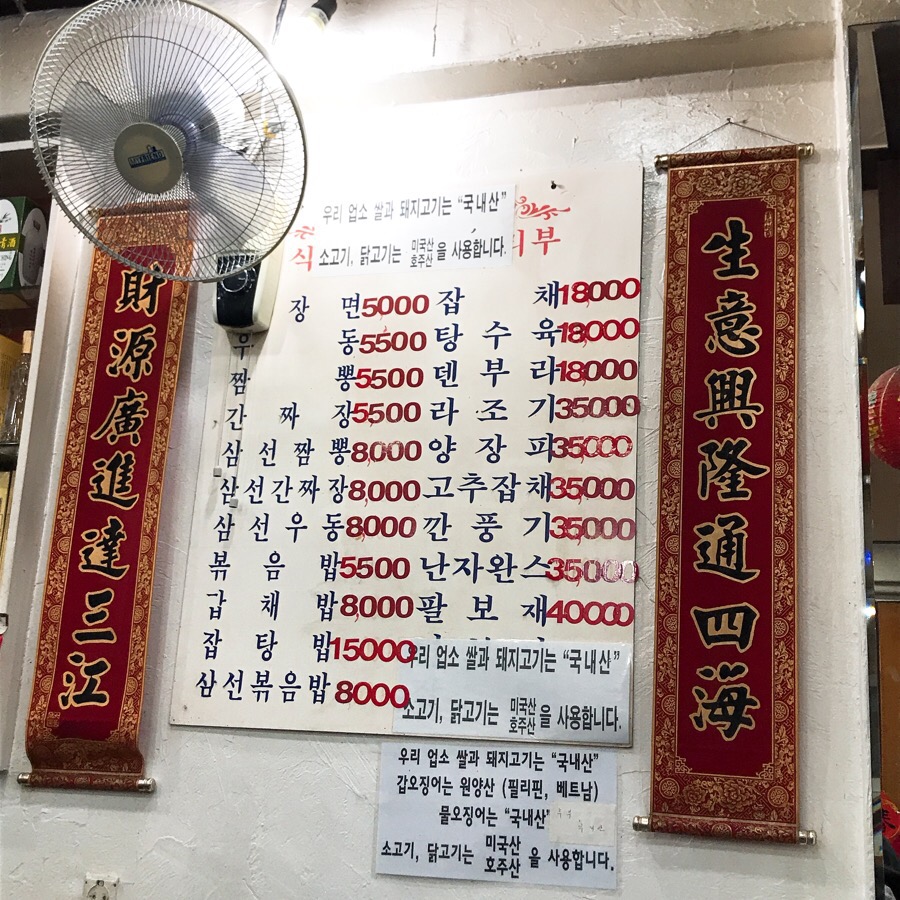 우리 업소 쌀과 돼지고기는 “국내산”
소고기, 닭고기는 미국산 호주산 을 사용합니다.
식
부
장 면 5000
동 5500
우
짬 뽕 5500
간 짜 장 5,500
삼 선 짬 뽕 8,000
삼선간짜장 8,000
삼 선 우 동 8,000
볶 음 밥 5500
잡 채 밥 8,000
잡 탕 밥 15000
삼선볶음밥 8000
잡 채 18,000
탕 수 육 18,000
덴 부 라 18,000
라 조 기 35000
양 장 피 35,000
고추잡채 35,000
깐 풍 기 35,000
난자완스 35000
팔 보 채 40000
우리 업소 쌀과 돼지고기는 “국내산”
소고기, 닭고기는 미국산 호주산 을 사용합니다.
우리 업소 쌀과 돼지고기는 “국내산”
갑오징어는 원양산 (필리핀, 베트남)
물오징어는 “국내산”
소고기, 닭고기는 미국산 호주산 을 사용합니다.
財源廣進達三江
生意興隆通四海
清酒